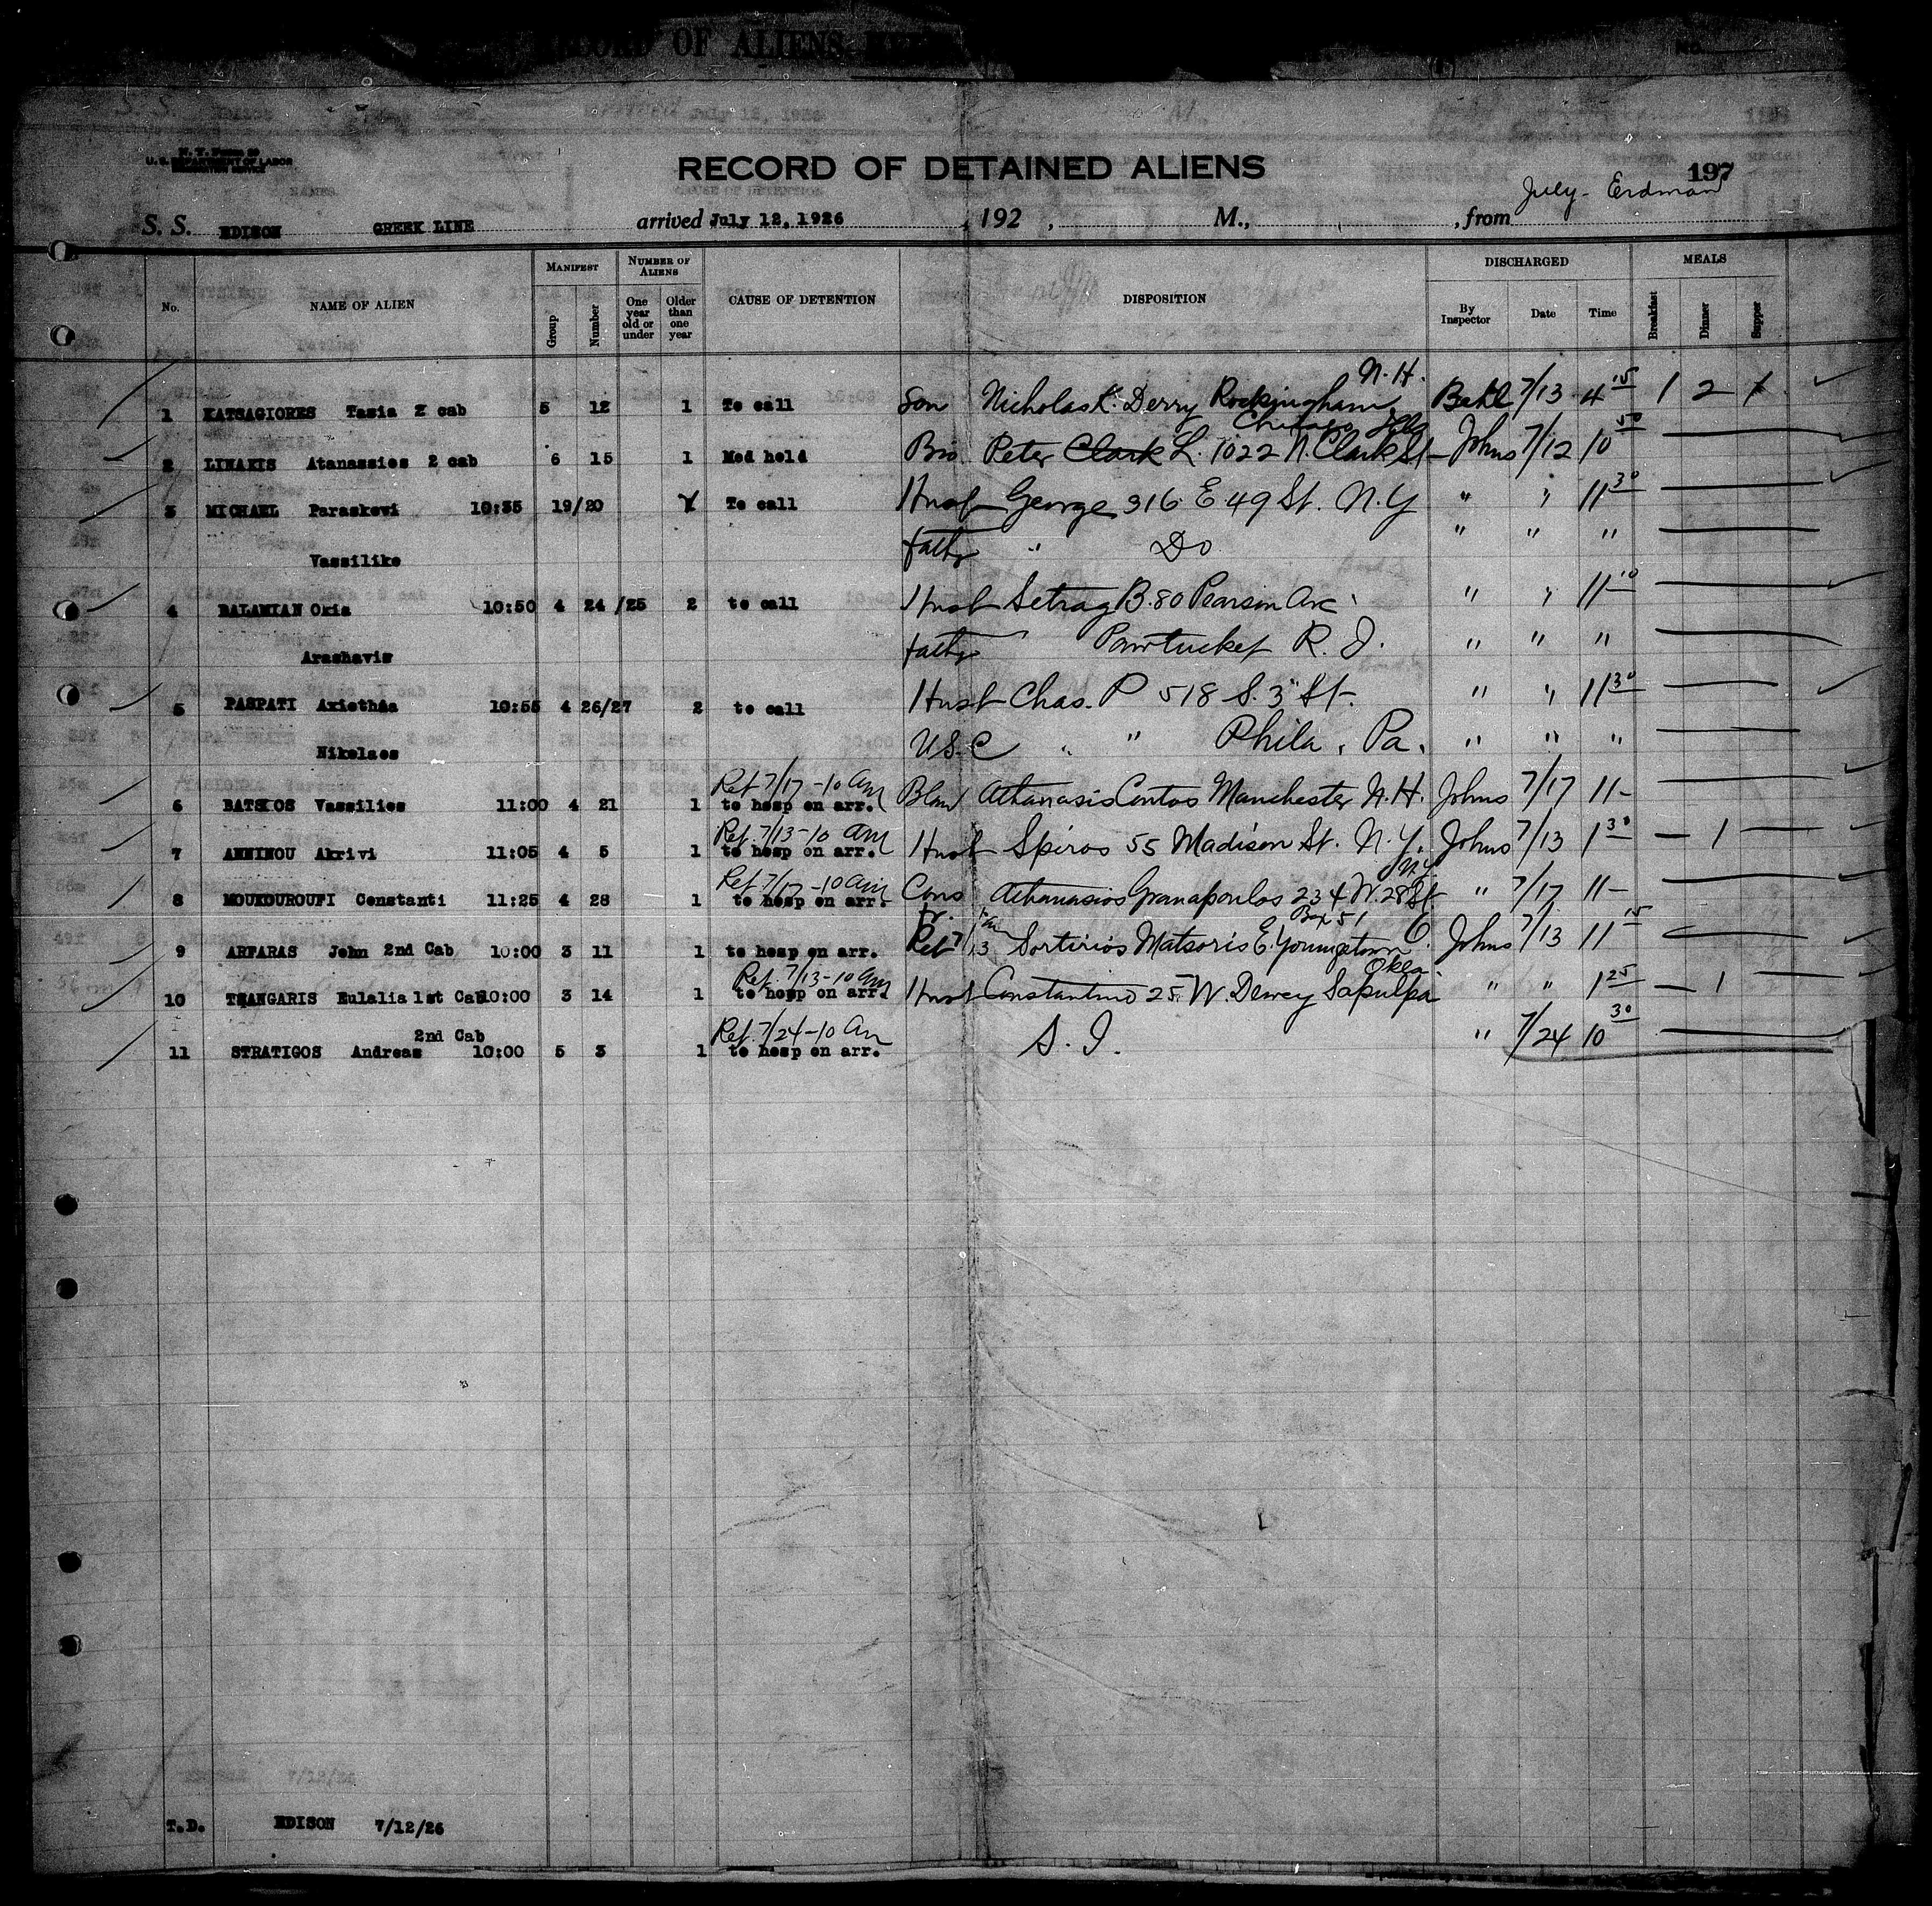 RECORD OF ALIENS
No.
N. Y. Form 20
U. S. DEPARTMENT OF LABOR
IMMIGRATION SERVICE
RECORD OF DETAINED ALIENS
197
July - Erdman
S. S. EDISON GREEK LINE arrived July 12, 1926, 192 , M., , from
No. NAME OF ALIEN MANIFEST Group Number NUMBER OF ALIENS One year old or under Older than one year CAUSE OF DETENTION DISPOSITION DISCHARGED By Inspector Date Time MEALS Breakfast Dinner Supper
N. H.
1 KATSAGIORES Tasia 2 cab 5 12 1 To call Son Nicholas K. Derry Rockingham 7/13 4 15 1 2
Chicago Ills
2 LINAKIS Atanassios 2 cab 6 15 1 Med held Bro Peter Clark L. 1022 N. Clark St Johns 7/12 10 50
3 MICHAEL Paraskevi 10:35 19/20 To call Husb George 316 E 49 St. N.Y " " 11 30
Vassilike Fath " Do " " "
4 BALAMIAN Okia 10:50 4 24/25 2 to call Husb Setrag B. 80 Pearson Ave " " 11 10
Arashavis Fath Pawtucket R. I. " " "
5 PASPATI Axiothea 10:55 4 26/27 2 to call Husb Chas. P 518 S. 3" St. " " 11 30
Nikolaos U.S.C " " Phila, Pa. " " "
Ret 7/17-10 am
6 BATSIOS Vassilios 11:00 4 21 1 to hosp on arr. Blaw Athanasis Contos Manchester N.H. Johns 7/17 11-
Ret 7/13-10 am
7 ANNINOU Akrivi 11:05 4 5 1 to hosp on arr. Husb Spiros 55 Madison St. N.Y. Johns 7/13 1 30 1
Ret 7/17-10 am N.Y.
8 MOUKOUROUFI Constanti 11:25 4 28 1 to hosp on arr. Cous Athanasios Granapoulos 234 W. 28 St " 7/17 11-
Box 51
9 ARFARAS John 2nd Cab 10:00 3 11 1 to hosp on arr. Ret 7/13 Sortirios Matsoris E. Youngstown O. Johns 7/13 11 15
Ret. 7/13-10 am Okla
10 TSANGARIS Eulalia 1st Cab 10:00 3 14 1 to hosp on arr. Husb Constantino 25 W. Dewey Sapulpa " " 1 25 1
2nd Cab Ret. 7/24-10 am
11 STRATIGOS Andreas 10:00 5 3 1 to hosp on arr. S. I. " 7/24 10 30
T.D. EDISON 7/12/26